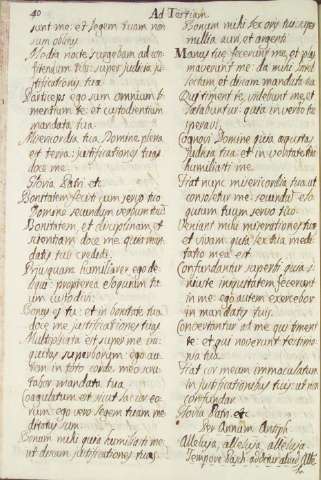 40
Ad Tertiam
sunt me: et legem tuam non
sum oblitus.
Media nocte surgebam ad con-
fitendum tibi: super judicia ju-
stificationis tuæ.
Particeps ego sum omnium ti-
mentium te: et custodientium
mandata tua.
Misericordia tua, Domine, plena
est terra: justificationes tuas
doce me.
Gloria Patri etc.
Bonitatem fecisti cum servo tuo
Domine secundum verbum tuum
Bonitatem, et disciplinam, et
scientiam doce me: quia man-
datis tuis credidi.
Priusquam humiliarer ego de-
liqui: propterea eloquium tu-
um custodivi.
Bonus es tu: et in bonitate tua
doce me justificationes tuas
Multiplicata est super me ini-
quitas superborum: ego au-
tem in toto corde meo scru-
tabor mandata tua.
Coagulatum est sicut lac cor eo-
rum: ego vero legem tuam me-
ditatus sum.
Bonum mihi quia humiliasti me
ut discam justificationes tuas.
Bonum mihi lex oris tui super
millia auri, et argenti.
Manus tuæ fecerunt me, et plas-
maverunt me: da mihi intel-
lectum et discam mandata tua
Qui timent te, videbunt me, et
lætabuntur: quia in verba tua
speravi.
Cognovi Domine quia æquitas
judicia tua: et in veritate tua
humiliasti me.
Fiat nunc misericordia tua ut
consoletur me: secundum elo-
quium tuum servo tuo.
Veniant mihi miserationes tuæ
et vivam: quia lex tua medi-
tatio mea est.
Confundantur superbi, quia in-
juste iniquitatem fecerunt
in me: ego autem exercebor
in mandatis tuis.
Convertantur ad me qui timent
te: et qui noverunt testimo-
nia tua.
Fiat cor meum immaculatum
in justificationibus tuis: ut non
confundar.
Gloria Patri. etc.
Per Annum Antiph.
Alleluja, alleluja, alleluja
Tempore Pasch.